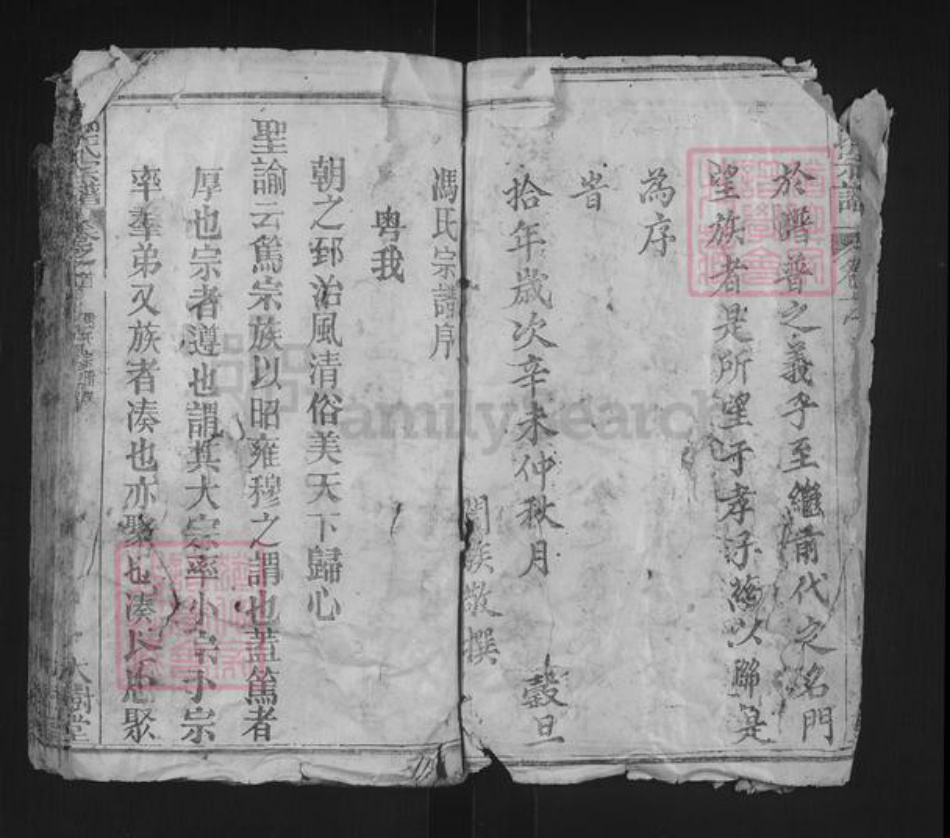 於譜普之義乎至繼前代之名門
望族者是所望于孝子慈以聯是
為序
旹
拾年歲次辛未仲秋月 穀旦
闔族敬撰
馮氏宗譜序
粤我
朝之郅治風清俗美天下歸心
聖諭云篤宗族以昭雍穆之謂也蓋篤者
厚也宗者遵也謂其大宗率小宗于宗
率羣弟又族者凑也亦聚也凑
聚
氏宗譜
大樹堂
FamilySearch